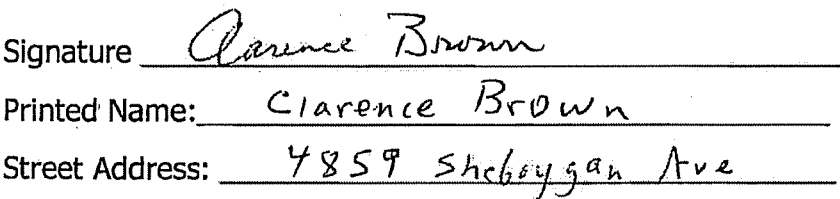 Signature Clarence Brown
Printed Name: Clarence Brown
Street Address: 4859 Sheboygan Ave